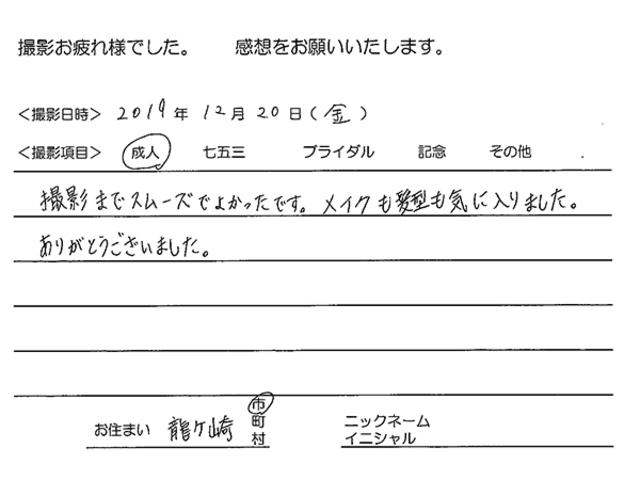 撮影お疲れ様でした。 感想をお願いいたします。
＜撮影日時＞ 2019 年 12 月 20 日 ( 金 )
＜撮影項目＞ 成人 七五三 ブライダル 記念 その他
撮影までスムーズでよかったです。メイクも髪型も気に入りました。
ありがとうございました。
お住まい 龍ケ崎 市 町 村 ニックネーム イニシャル